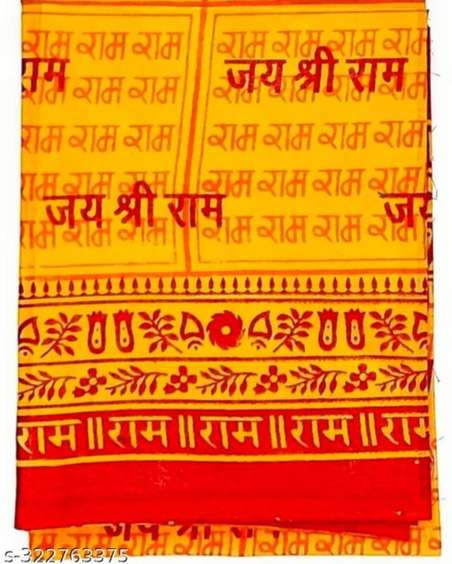 राम राम राम राम राम राम राम
राम जय श्री राम
राम राम राम राम राम राम राम
राम राम राम राम राम राम राम
राम राम राम राम राम राम राम
जय श्री राम जय
राम राम राम राम राम राम राम
राम॥राम॥राम॥राम॥राम
जय श्री राम
s-322763375